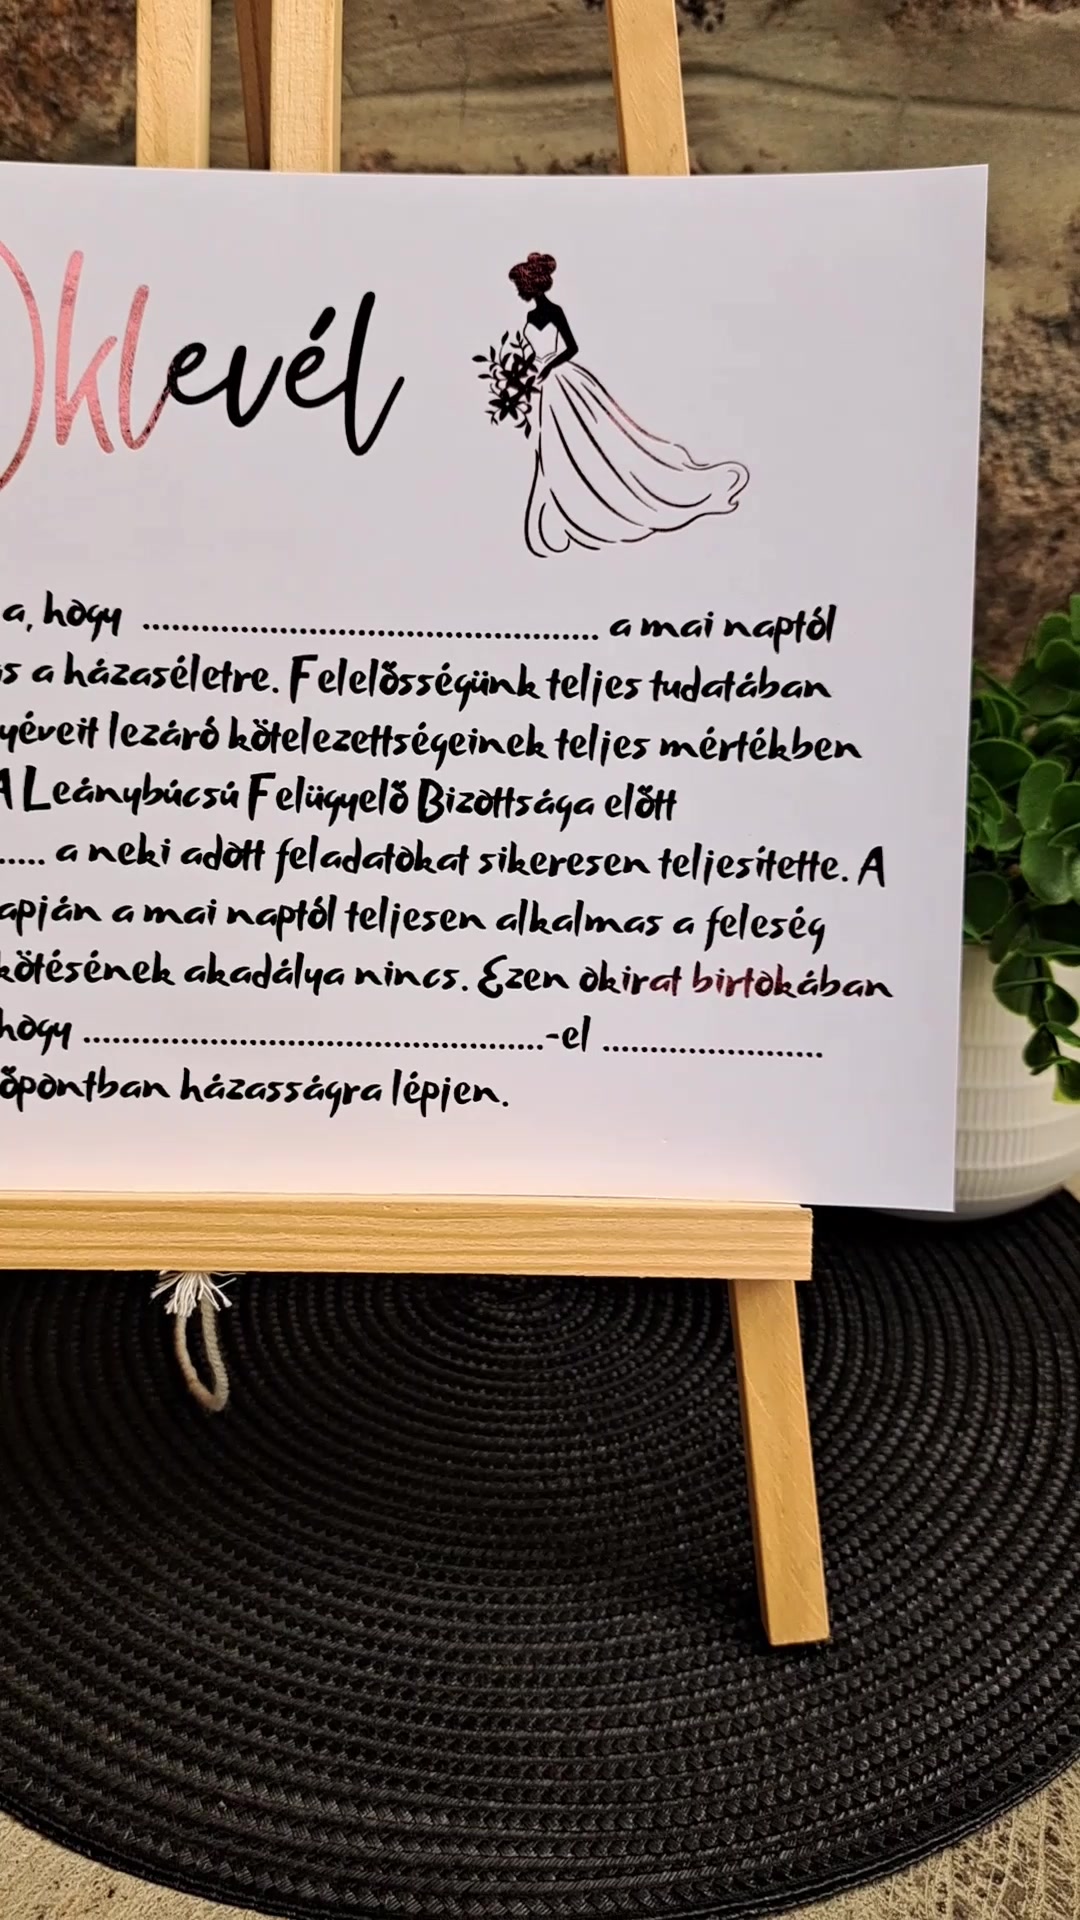 Oklevél
a, hogy ................................................ a mai naptól
s a házaséletre. Felelősségünk teljes tudatában
yéveit lezáró kötelezettségeinek teljes mértékben
A Leánybúcsú Felügyelő Bizottsága előtt
..... a neki adott feladatokat sikeresen teljesítette. A
apján a mai naptól teljesen alkalmas a feleség
kötésének akadálya nincs. Ezen okirat birtokában
hogy ................................................-el .......................
őpontban házasságra lépjen.